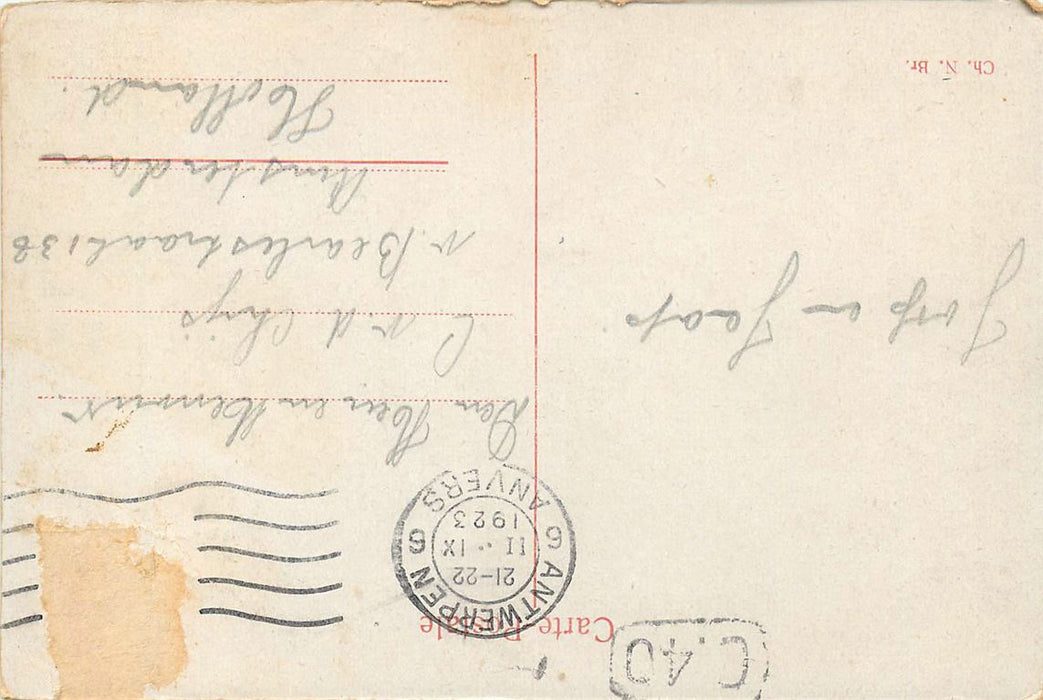 C.40
Carte Postale
ANTWERPEN 6
21-22
11 · IX
1923
6 ANVERS
Den Heer en Mevrouw.
C v. d. Chijs
v. Bearlestraat 138
Amsterdam
Holland.
Joop en Jaap
Ch. N. Br.